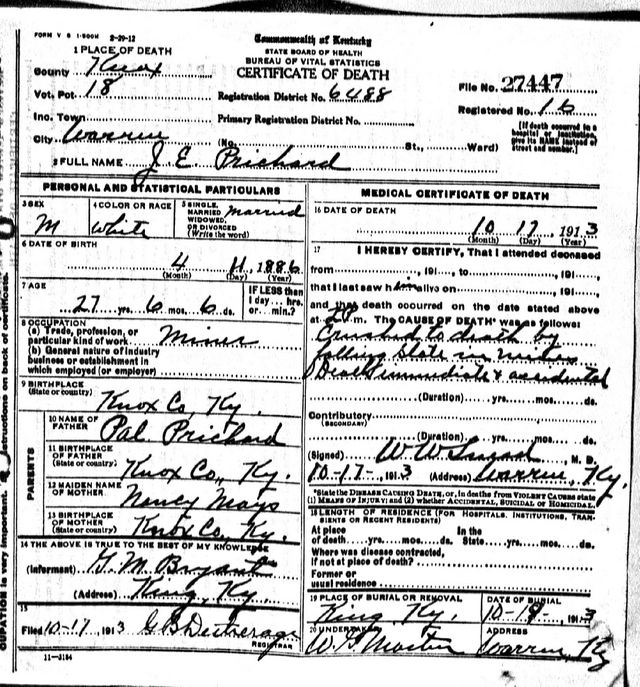 FORM V S 1-500M 2-29-12
Commonwealth of Kentucky
STATE BOARD OF HEALTH
BUREAU OF VITAL STATISTICS
CERTIFICATE OF DEATH
1 PLACE OF DEATH
County Knox
Vot. Pct 18
Inc. Town
City Warren
Registration District No. 6488
Primary Registration District No.
(No. St., Ward)
File No. 27447
Registered No. 16
[If death occurred in a
hospital or institution,
give its NAME instead of
street and number.]
2 FULL NAME J E Prichard
PERSONAL AND STATISTICAL PARTICULARS
3 SEX
M
4 COLOR OR RACE
White
5 SINGLE,
MARRIED
WIDOWED,
OR DIVORCED
(Write the word)
Married
6 DATE OF BIRTH
4 11, 1886
(Month) (Day) (Year)
7 AGE
27 yrs. 6 mos. 6 ds.
IF LESS than
1 day... hrs.
or... min.?
8 OCCUPATION
(a) Trade, profession, or
particular kind of work Miner
(b) General nature of industry
business or establishment in
which employed (or employer)
9 BIRTHPLACE
(State or country)
Knox Co, Ky.
PARENTS
10 NAME OF
FATHER
Pal Prichard
11 BIRTHPLACE
OF FATHER
(State or country)
Knox Co., Ky.
12 MAIDEN NAME
OF MOTHER
Nancy Mays
13 BIRTHPLACE
OF MOTHER
(State or country)
Knox Co., Ky.
14 THE ABOVE IS TRUE TO THE BEST OF MY KNOWLEDGE
(Informant) G. M. Bryant
(Address) King, Ky.
15
Filed 10-17, 1913 G B
REGISTRAR
11-3184
MEDICAL CERTIFICATE OF DEATH
16 DATE OF DEATH
10 17, 1913
(Month) (Day) (Year)
17 I HEREBY CERTIFY, That I attended deceased
from , 191 , to , 191 ,
that I last saw him alive on , 191 ,
and that death occurred on the date stated above
at 2 P.m. The CAUSE OF DEATH* was as follows:
Crushed to death by
falling slate in mines
Death immediate & accidental
(Duration) yrs. mos. ds.
Contributory
(SECONDARY)
(Duration) yrs. mos. ds.
(Signed) W W M. D.
10-17-, 1913 (Address) Warren, Ky.
*State the DISEASE CAUSING DEATH, or, in deaths from VIOLENT CAUSES state
(1) MEANS OF INJURY; and (2) whether ACCIDENTAL, SUICIDAL OR HOMICIDAL.
18 LENGTH OF RESIDENCE (FOR HOSPITALS, INSTITUTIONS, TRANSIENTS OR RECENT RESIDENTS)
At place
of death yrs. mos. ds.
In the
State yrs. mos. ds.
Where was disease contracted,
if not at place of death?
Former or
usual residence
19 PLACE OF BURIAL OR REMOVAL
King, Ky.
DATE OF BURIAL
10-19-, 1913
20 UNDERTAKER
W. G. Martin
ADDRESS
Warren, Ky